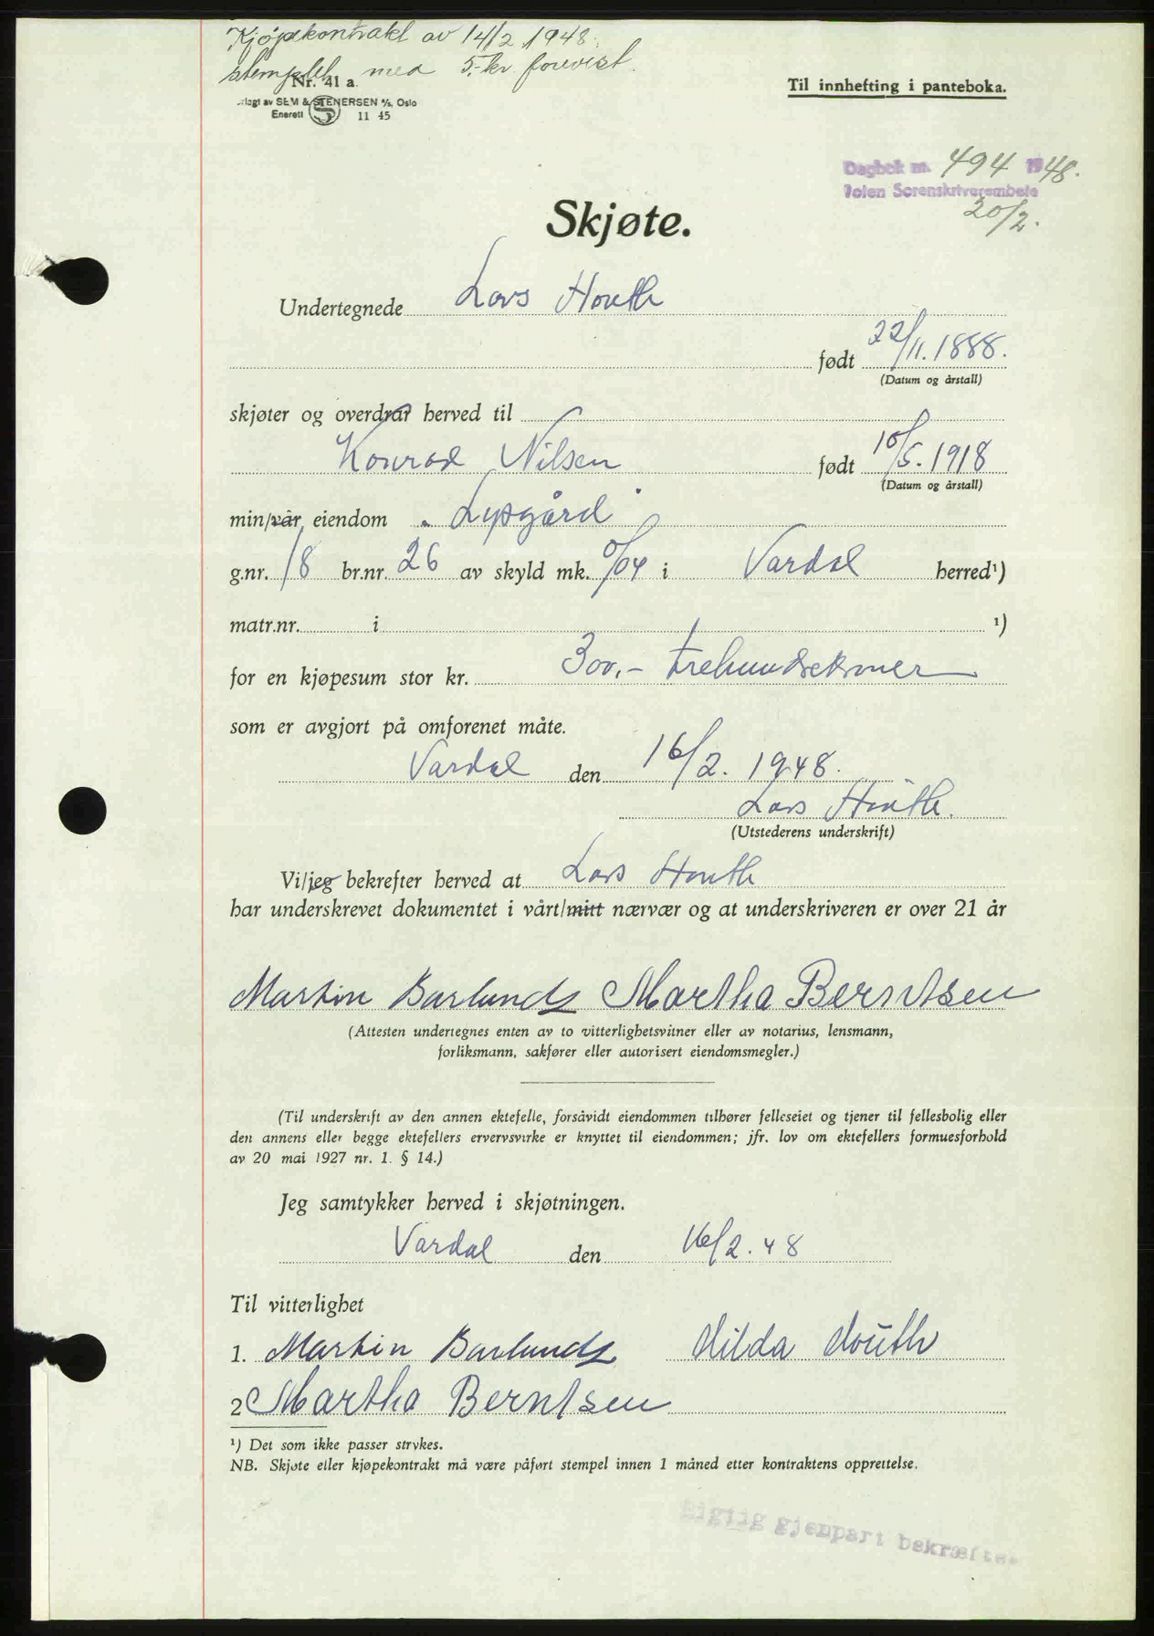 Kjøpekontrakt av 14/2 1948.
stemplet med 5.- kr forevist.
Nr. 41 a.
SEM & STENERSEN A/S, Oslo
Enerett S 11 45
Til innhefting i panteboka.
Dagbok nr. 494 1948.
Toten Sorenskriverembete
20/2.
Skjøte.
Undertegnede Lars Houth
født 22/11. 1888.
(Datum og årstall)
skjøter og overdrar herved til
Konrad Nilsen født 10/5. 1918
(Datum og årstall)
min/vår eiendom "Lysgård"
g.nr. 18 br.nr. 26 av skyld mk. 0/04 i Vardal herred¹)
matr.nr. i ¹)
for en kjøpesum stor kr. 300,- trehundrekroner
som er avgjort på omforenet måte.
Vardal den 16/2. 1948.
Lars Houth.
(Utstederens underskrift)
Vi/jeg bekrefter herved at Lars Houth
har underskrevet dokumentet i vårt/mitt nærvær og at underskriveren er over 21 år
Martin Barlund Martha Berntsen
(Attesten undertegnes enten av to vitterlighetsvitner eller av notarius, lensmann,
forliksmann, sakfører eller autorisert eiendomsmegler.)
(Til underskrift av den annen ektefelle, forsåvidt eiendommen tilhører felleseiet og tjener til fellesbolig eller
den annens eller begge ektefellers ervervsvirke er knyttet til eiendommen; jfr. lov om ektefellers formuesforhold
av 20 mai 1927 nr. 1. § 14.)
Jeg samtykker herved i skjøtningen.
Vardal den 16/2. 48
Til vitterlighet
1. Martin Barlund Hilda Houth
2 Martha Berntsen
¹) Det som ikke passer strykes.
NB. Skjøte eller kjøpekontrakt må være påført stempel innen 1 måned etter kontraktens opprettelse.
Rigtig gjenpart bekræftes